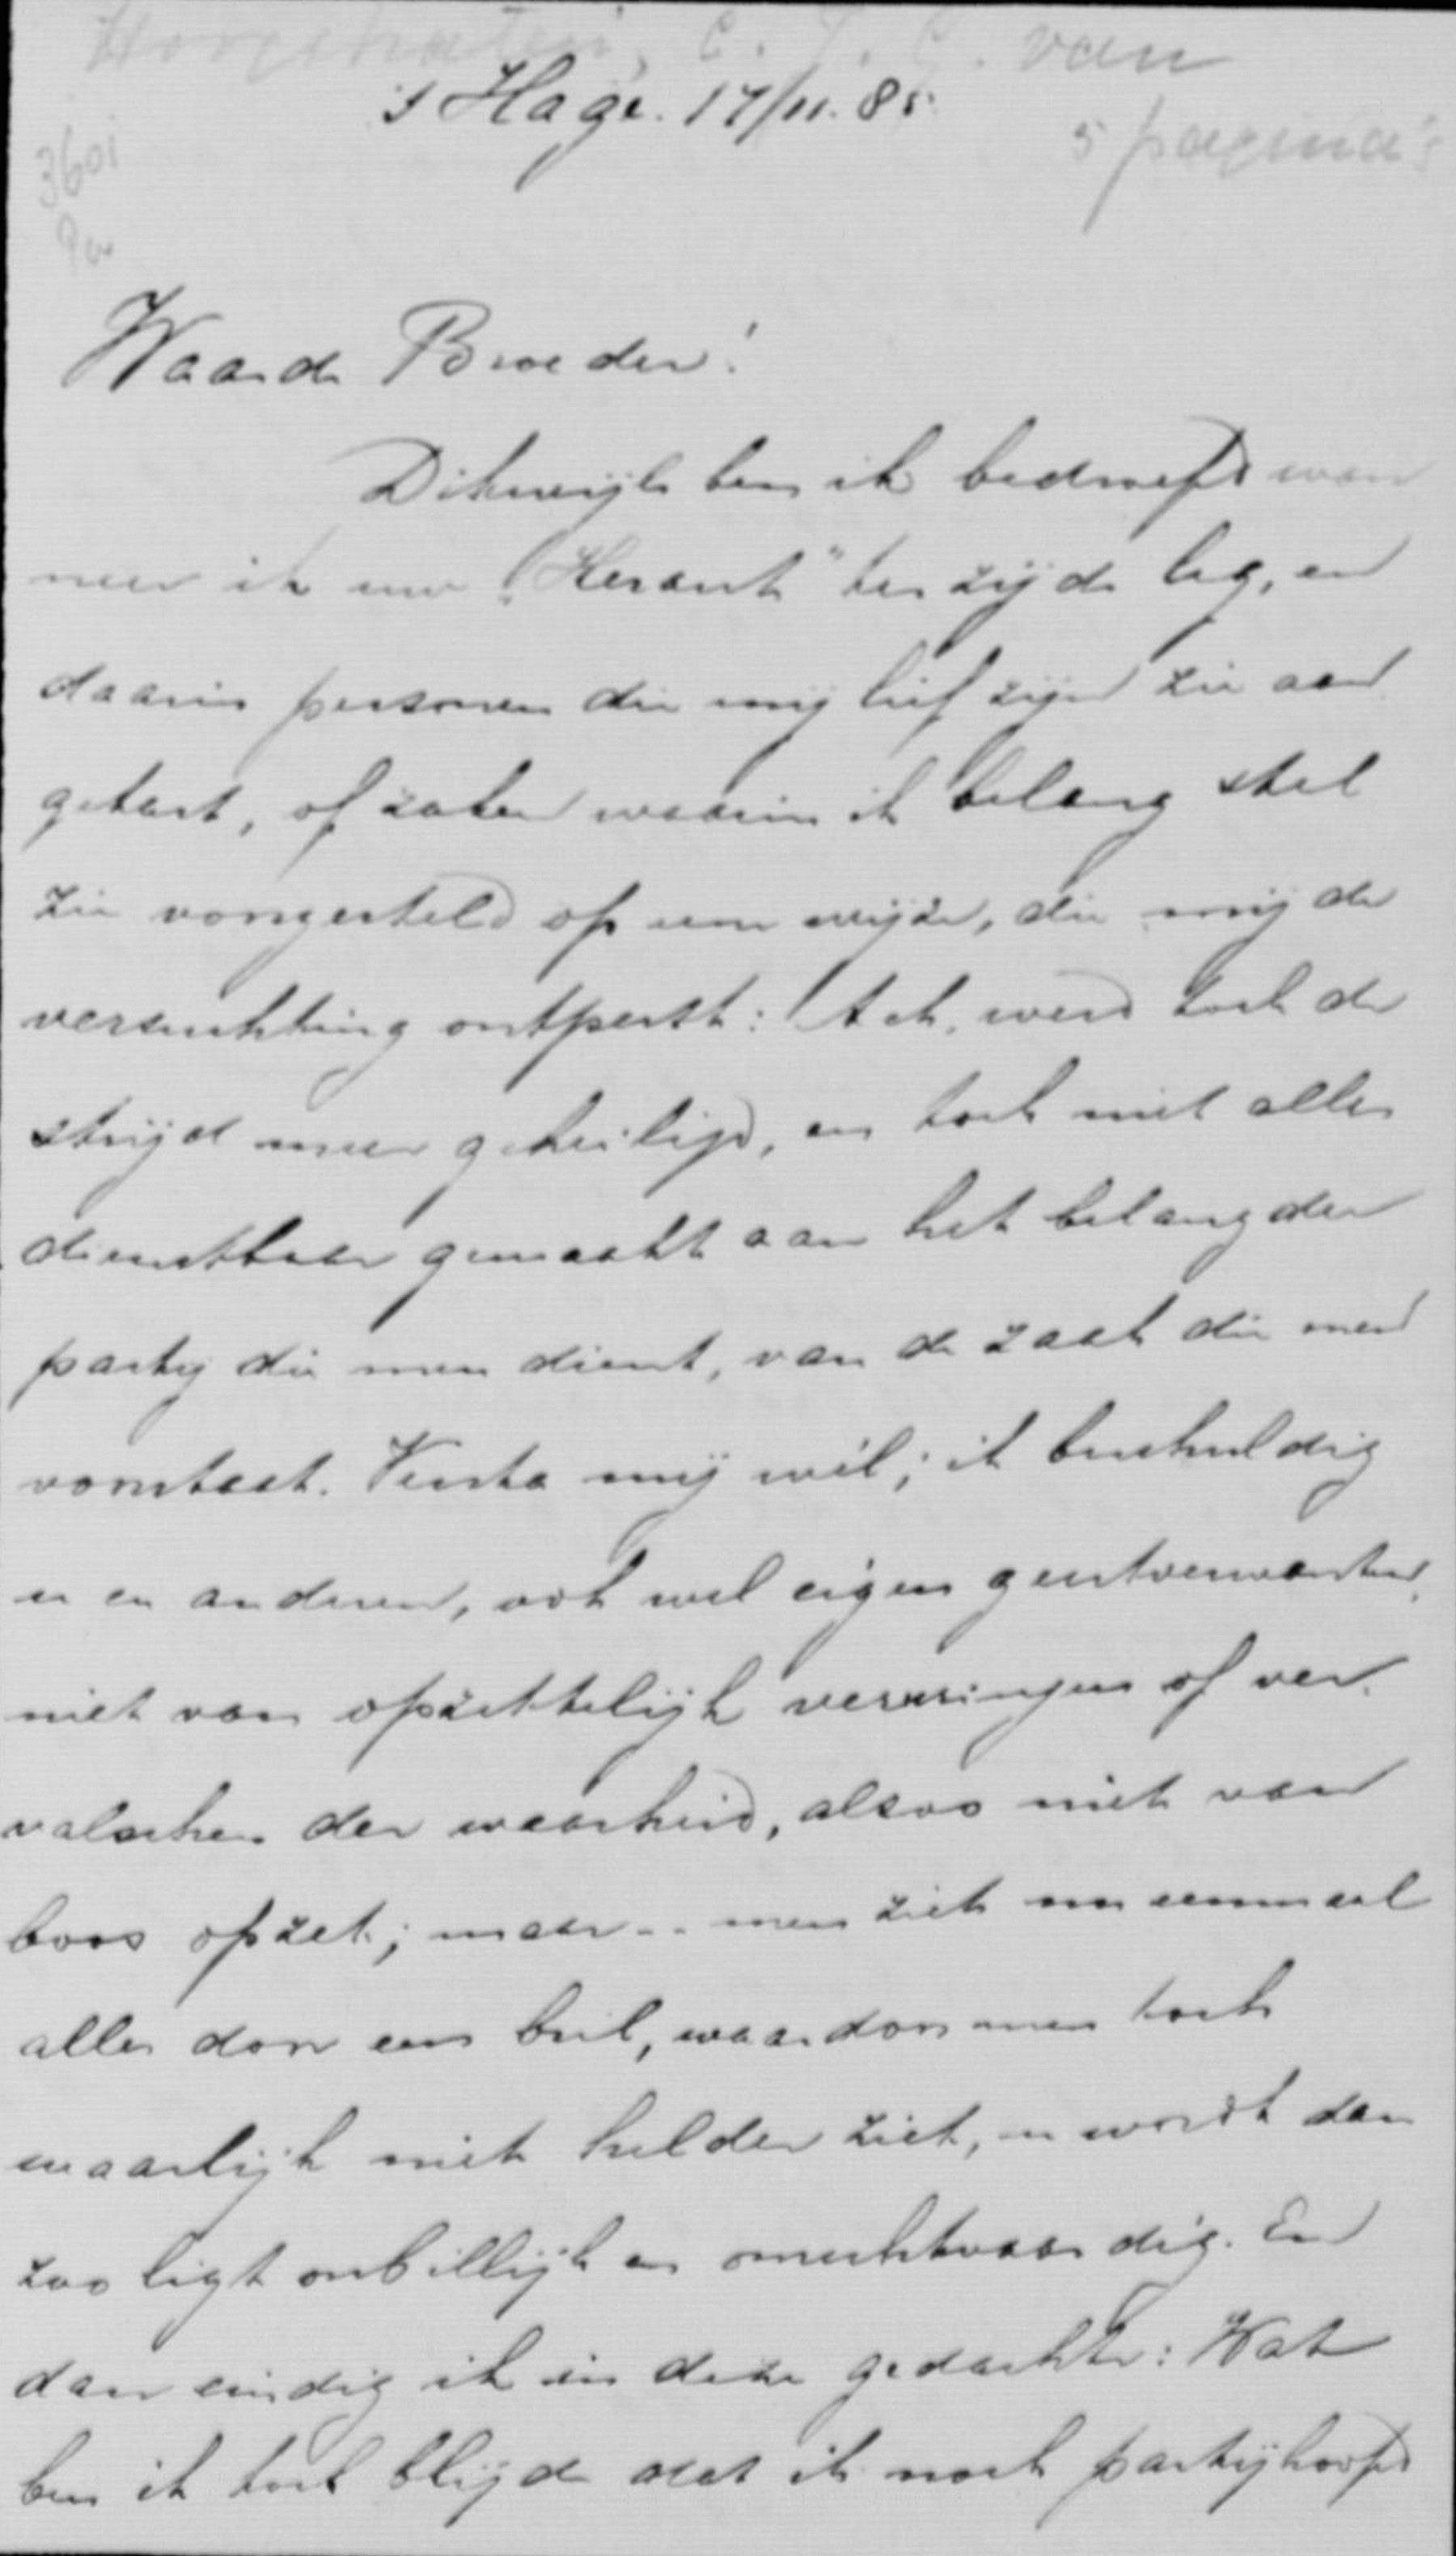 C. J. C. van
's Hage. 17/11. 85
5 pagina's
3601
Waarde Broeder!
Dikwijls ben ik bedroefd wan
neer ik uw "Heraut" ter zijde leg, en
daarin personen die mij lief zijn zie aan
getast, of zaken waarin ik belang stel
zie voorgesteld op eene wijze, die mij de
verzuchting ontperst: Ach, werd toch de
strijd meer geheiligd, en toch niet alles
dienstbaar gemaakt aan het belang der
partij die men dient, van de zaak die men
voorstaat. Versta mij wèl; ik beschuldig
u en anderen, ook wel eigen geestverwanten,
niet van opzettelijk verwringen of ver
valschen der waarheid, alzoo niet van
boos opzet; maar -- men ziet nu eenmaal
alles door een bril, waardoor men toch
waarlijk niet helder ziet, en wordt dan
zoo ligt onbillijk en onrechtvaardig. En
dan eindig ik in deze gedachte: Wat
ben ik toch blijde dat ik noch partijhoofd